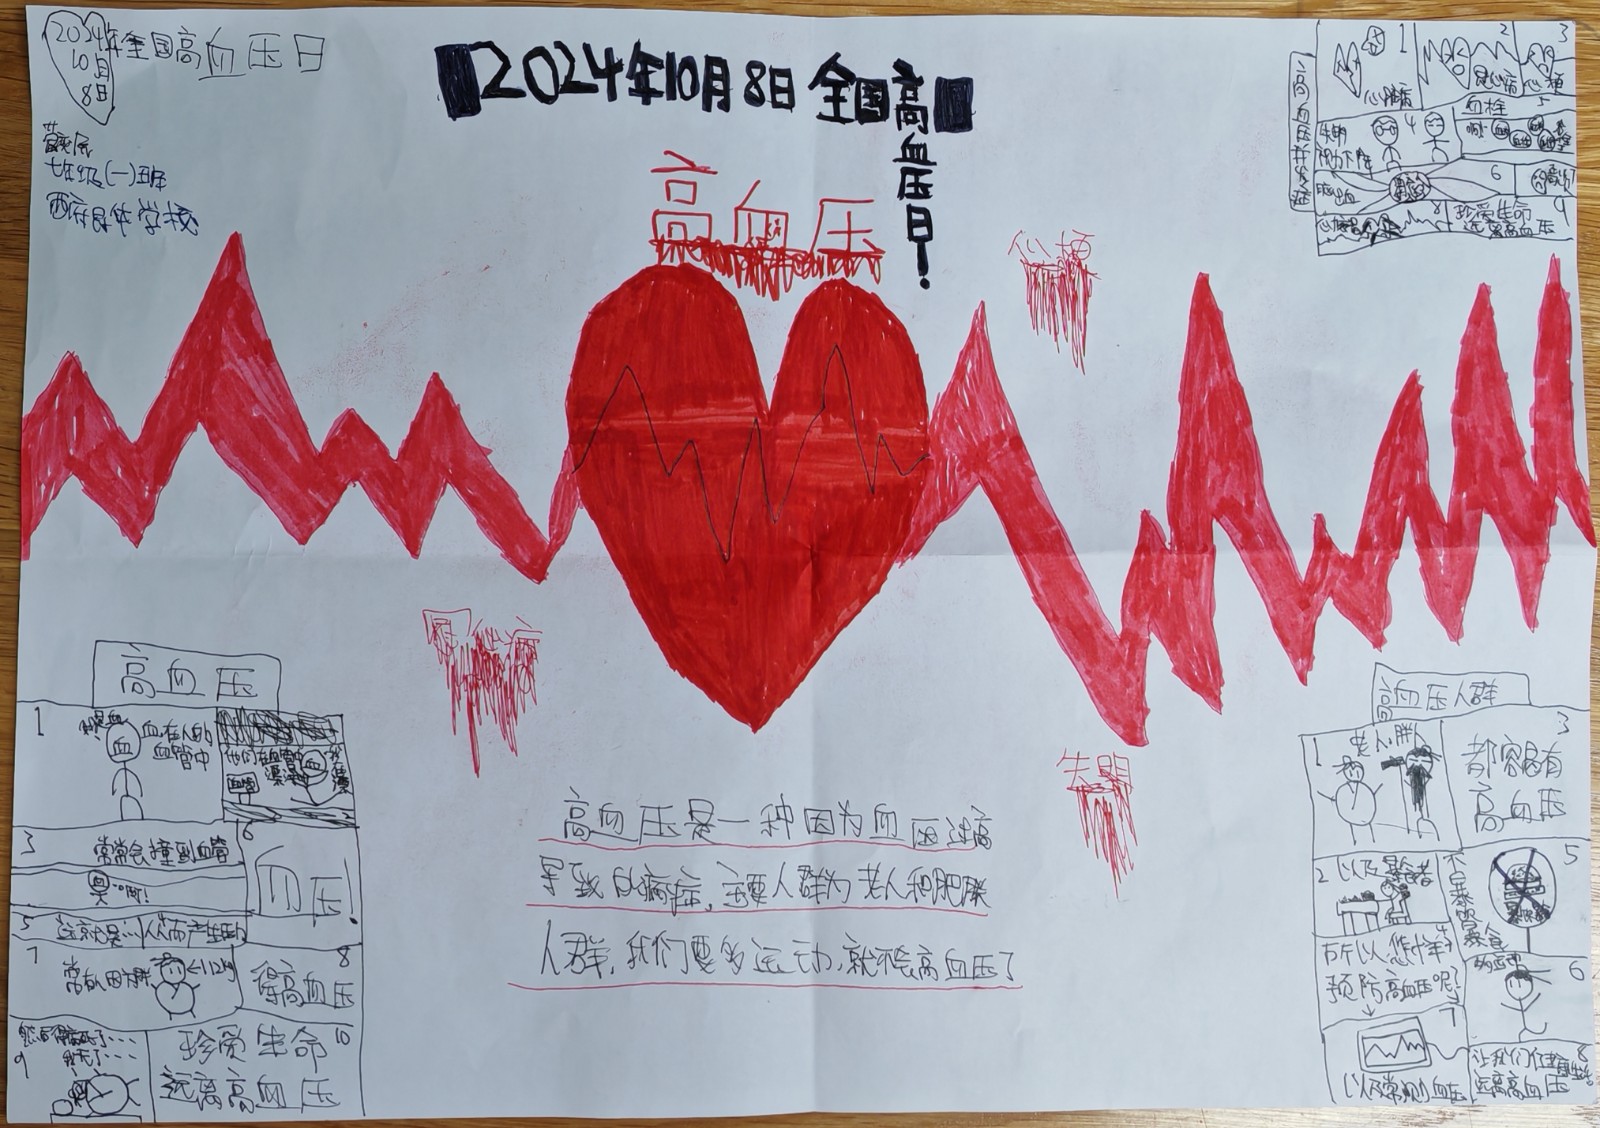 2024年全国高血压日
10月
8日
七年级(一)班
学校
2024年10月8日 全国高血压日!
高血压
心梗
失明
高血压并发症
1
心脏病
2
冠心病
3
心梗
失明
视力下降
4
血栓
5
脑出血
6
8
珍爱生命
远离高血压
9
高血压
1
血
血在人的
血管中
他们在血管中
3
常常会撞到血管
血压!
6
5
这就是……从而产生
7
常有人因为胖
←112kg
得高血压
8
9
珍爱生命
远离高血压
10
高血压是一种因为血压过高
导致的病症,主要人群为老人和肥胖
人群,我们要多运动,就不会高血压了
高血压人群
1
老人,胖人
3
都容易有
高血压
2
以及暴食者
不暴饮暴食
5
所以怎样
预防高血压呢?
4
多运动
6
7
以及常测血压
8
让我们
远离高血压